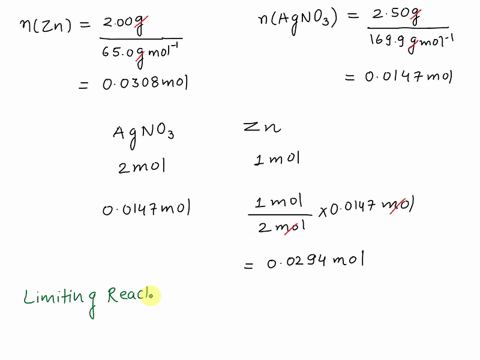 n(Zn) = 2.00g / 65.0g mol⁻¹
= 0.0308mol
n(AgNO₃) = 2.50g / 169.9 g mol⁻¹
= 0.0147mol
AgNO₃ Zn
2mol 1mol
0.0147mol 1mol / 2mol × 0.0147 mol
= 0.0294mol
Limiting Reac